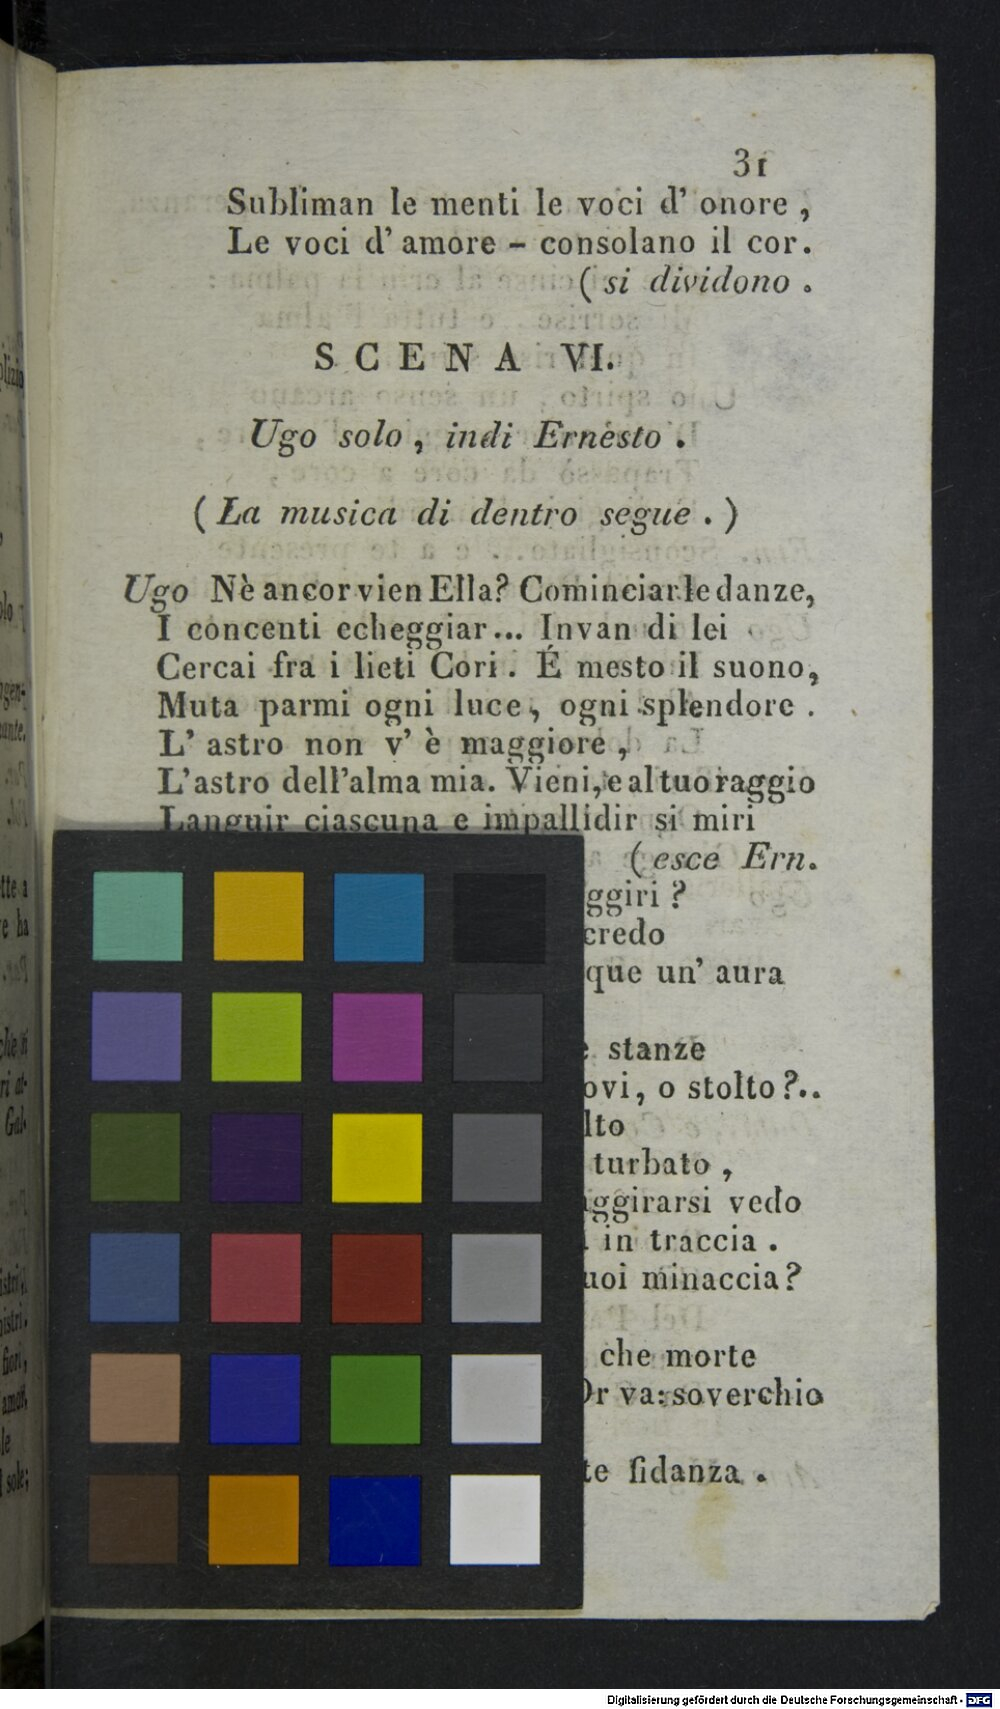 31
Subliman le menti le voci d' onore ,
Le voci d' amore – consolano il cor.
( si dividono .
SCENA VI.
Ugo solo , indi Ernesto .
( La musica di dentro segue . )
Ugo Nè ancor vien Ella? Cominciar le danze,
I concenti echeggiar... Invan di lei
Cercai fra i lieti Cori . É mesto il suono,
Muta parmi ogni luce, ogni splendore .
L' astro non v' è maggiore ,
L'astro dell'alma mia. Vieni, e al tuo raggio
Languir ciascuna e impallidir si miri
( esce Ern.
ggiri ?
credo
que un' aura
stanze
ovi, o stolto?..
lto
turbato ,
aggirarsi vedo
in traccia .
uoi minaccia?
che morte
Or va: soverchio
te fidanza .
Digitalisierung gefördert durch die Deutsche Forschungsgemeinschaft - DFG